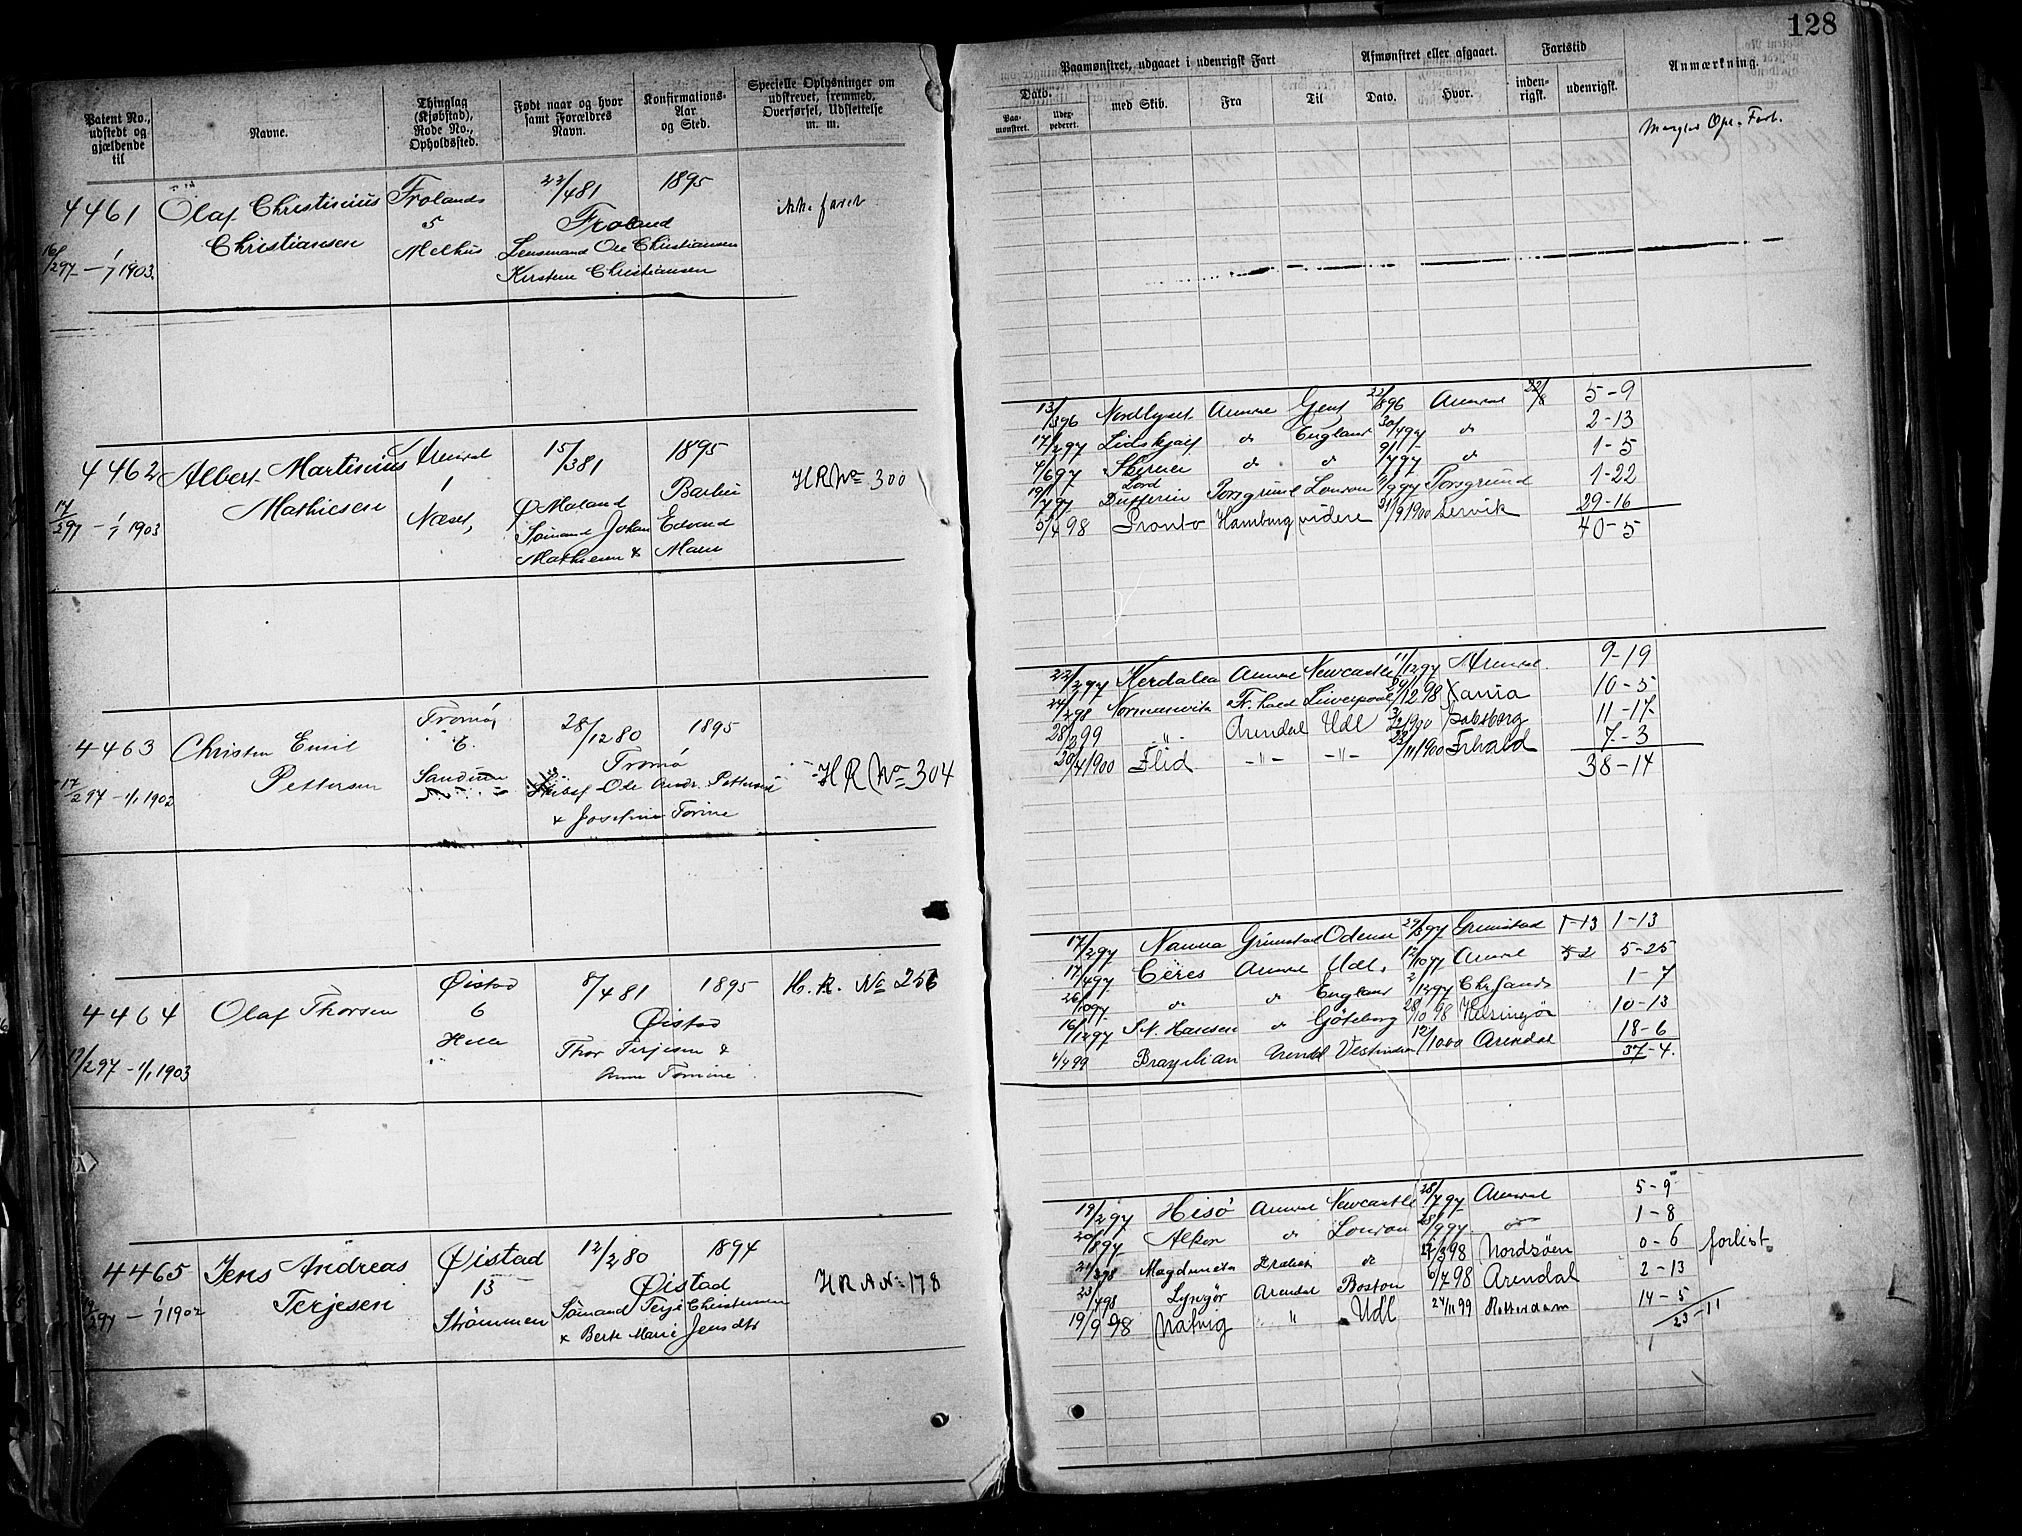 128
Patent No., udstedt og gjældende til
Navne.
Thinglag (Kjøbstad), Rode No., Opholdssted.
Født naar og hvor samt Forældres Navn.
Konfirmations-Aar og Sted.
Specielle Oplysninger om udskrevet, fremmed, Overførsel, Udslettelse m. m.
Paamønstret, udgaaet i udenrigsk Fart
Dato.
Paa-mønstret.
Uder-pederet.
med Skib.
Fra
Til
Afmønstret eller afgaaet.
Dato.
Hvor.
Fartstid
inden-rigsk.
udenrigsk.
Anmærkning.
4461
16/2 97 – 1/1 1903.
Olaf Christinius
Christiansen
Frolands
5
Melhus
22/4 81
Froland
Lensmand Ole Christiansen
Kirsten Christiansen
1895
ikke faret
4462
17/2 97 – 1/1 1903
Albert Martinius
Mathiesen
Arendal
1
Næset,
15/3 81
Ø Moland
Sømand Johan Edvard
Mathiesen &
1895
Barbu
HR No 300
13/3 96 Nordlyset Arendal Gent 22/8 96 Arendal 22/8 5-9
17/2 97 Lidskjalf do England 30/4 97 do 2-13
do do do 1-5
Lord Dufferin Porsgrund London Porsgrund 1-22
5/4 98 Pronto Hamburg videre 21/9 1900 Lervik 29-16
40-5
4463
17/2 97 – 1/1 1902
Christen Emil
Pettersen
Tromø,
6.
28/12 80
Tromø
Ole Andr. Pettersen
& Josefine Torine
1895
HR No 304
22/2 97 Arendal Newcastle 11/12 97 Arendal. 9-19
24/2 98 Fr.hald Liverpool 12 98 Xania 10-5
28/2 99 -"- Arendal Udl 1900 11-17
20/4 1900 Elid -"- -"- 23/11 1900 Frhald 7-3
38-14
4464
17/2 97 – 1/1 1903
Olaf Thorsen
Øistad
6
Helle
8/4 81
Øistad
Thor Terjesen &
Anne Tomine
1895
H.R. No 256
17/2 97 Nanna Grimstad Odense 29/3 97 Grimstad 1-13 1-13
17/4 97 Ceres Arendal Udl. 12/10 97 Arendal 5-25
26/10 97 do do England 2/12 97 Chrsand 1-7
16/12 97 S.N. Hansen do Göteborg 28/10 98 Helsingør 10-13
1/4 99 Brazilian Arendal Vestindien 12/10 00 Arendal 18-6
37-4.
4465
19/2 97 – 1/1 1902
Jens Andreas
Terjesen
Øistad
13
Strømmen
12/2 80
Øistad
Sømand Terje Christensen
& Berte Marie Jensdtr
1894
HRA No 178
19/2 97 Hisø Arendal Newcastle 28/7 97 Arendal 5-9
20/8 97 Alken do London 28/9 97 do 1-8
21/2 98 Magdalena do 3 98 Nordsøen 0-6 forlist
23/4 98 Lyngør Arendal Boston 6/7 98 Arendal 2-13
19/9 98 Natvig " Udl 24/11 99 Rotterdam 14-5
23-11